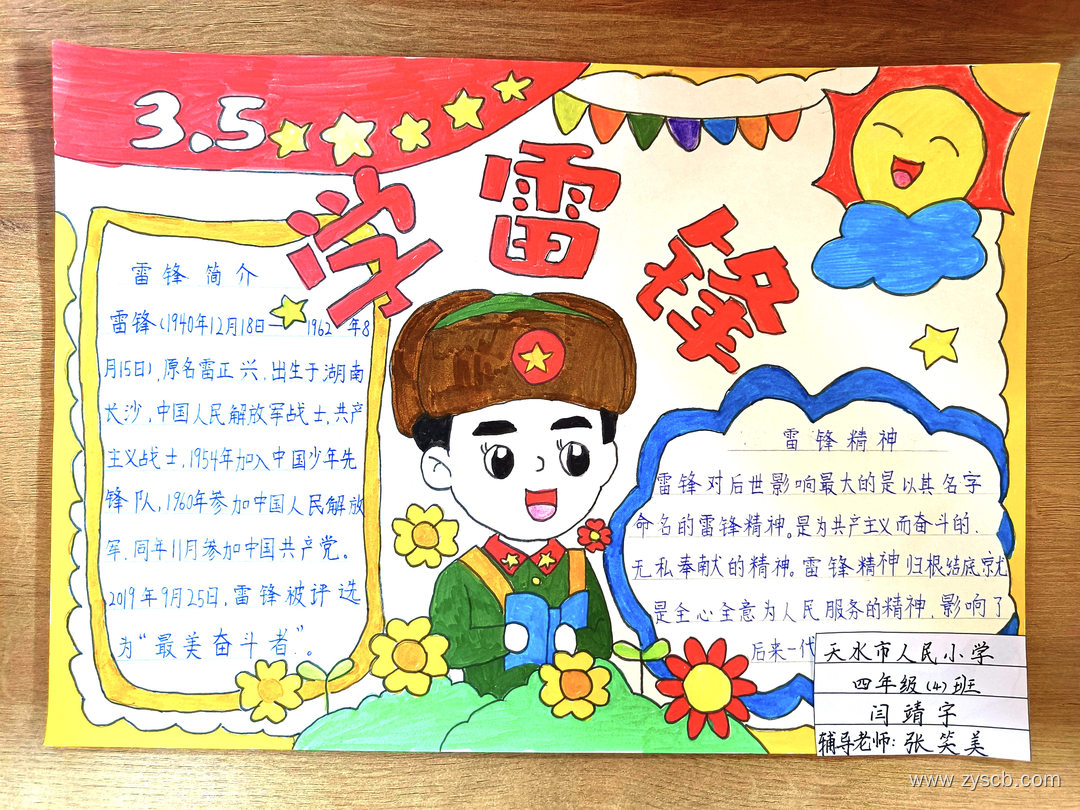 3.5
学雷锋
雷锋简介
雷锋(1940年12月18日——1962年8
月15日),原名雷正兴,出生于湖南
长沙,中国人民解放军战士,共产
主义战士,1954年加入中国少年先
锋队,1960年参加中国人民解放
军,同年11月参加中国共产党。
2019年9月25日,雷锋被评选
为“最美奋斗者”。
雷锋精神
雷锋对后世影响最大的是以其名字
命名的雷锋精神。是为共产主义而奋斗的.
无私奉献的精神。雷锋精神归根结底就
是全心全意为人民服务的精神,影响了
后来一代
天水市人民小学
四年级(4)班
闫靖宇
辅导老师:张笑美
www.zyscb.com